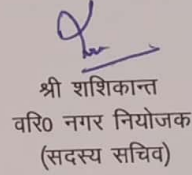 श्री शशिकान्त
वरि0 नगर नियोजक
(सदस्य सचिव)